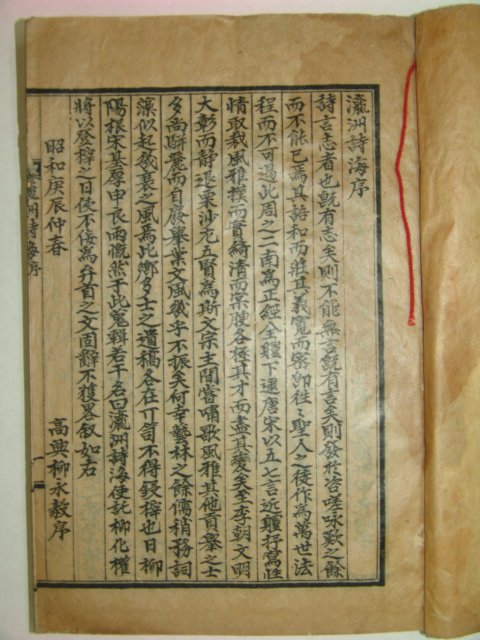 瀛洲詩海序
詩言志者也旣有志矣則不能無言旣有言矣則發於咨嗟咏歎之餘
而不能已焉其語和而莊其義寬而密即徃々聖人之徒作爲萬世法
程而不可過此周之二南爲正經全軆下逮唐宋以五七言近軆抒寫性
情取裁風雅樸而實綺清而亦腴各極其才而盡其變矣至李朝文明
大彰而靜退栗沙尤五賢爲斯文宗主間嘗嘯歌風雅其他貢擧之士
多尙騈儷而自廢擧業文風幾乎不振矣何幸藝林之餘儒稍務詞
藻似起衰之風焉此鄉多士之遺稿各在丌笥不得鋟梓也日柳
陽根宋基厚申長雨慨然于此蒐輯若干名曰瀛洲詩海使託柳化權
將以登梓之日使不佞爲弁首之文固辭不獲畧叙如右
昭和庚辰仲春
高興柳永毅序
瀛州詩海序
一